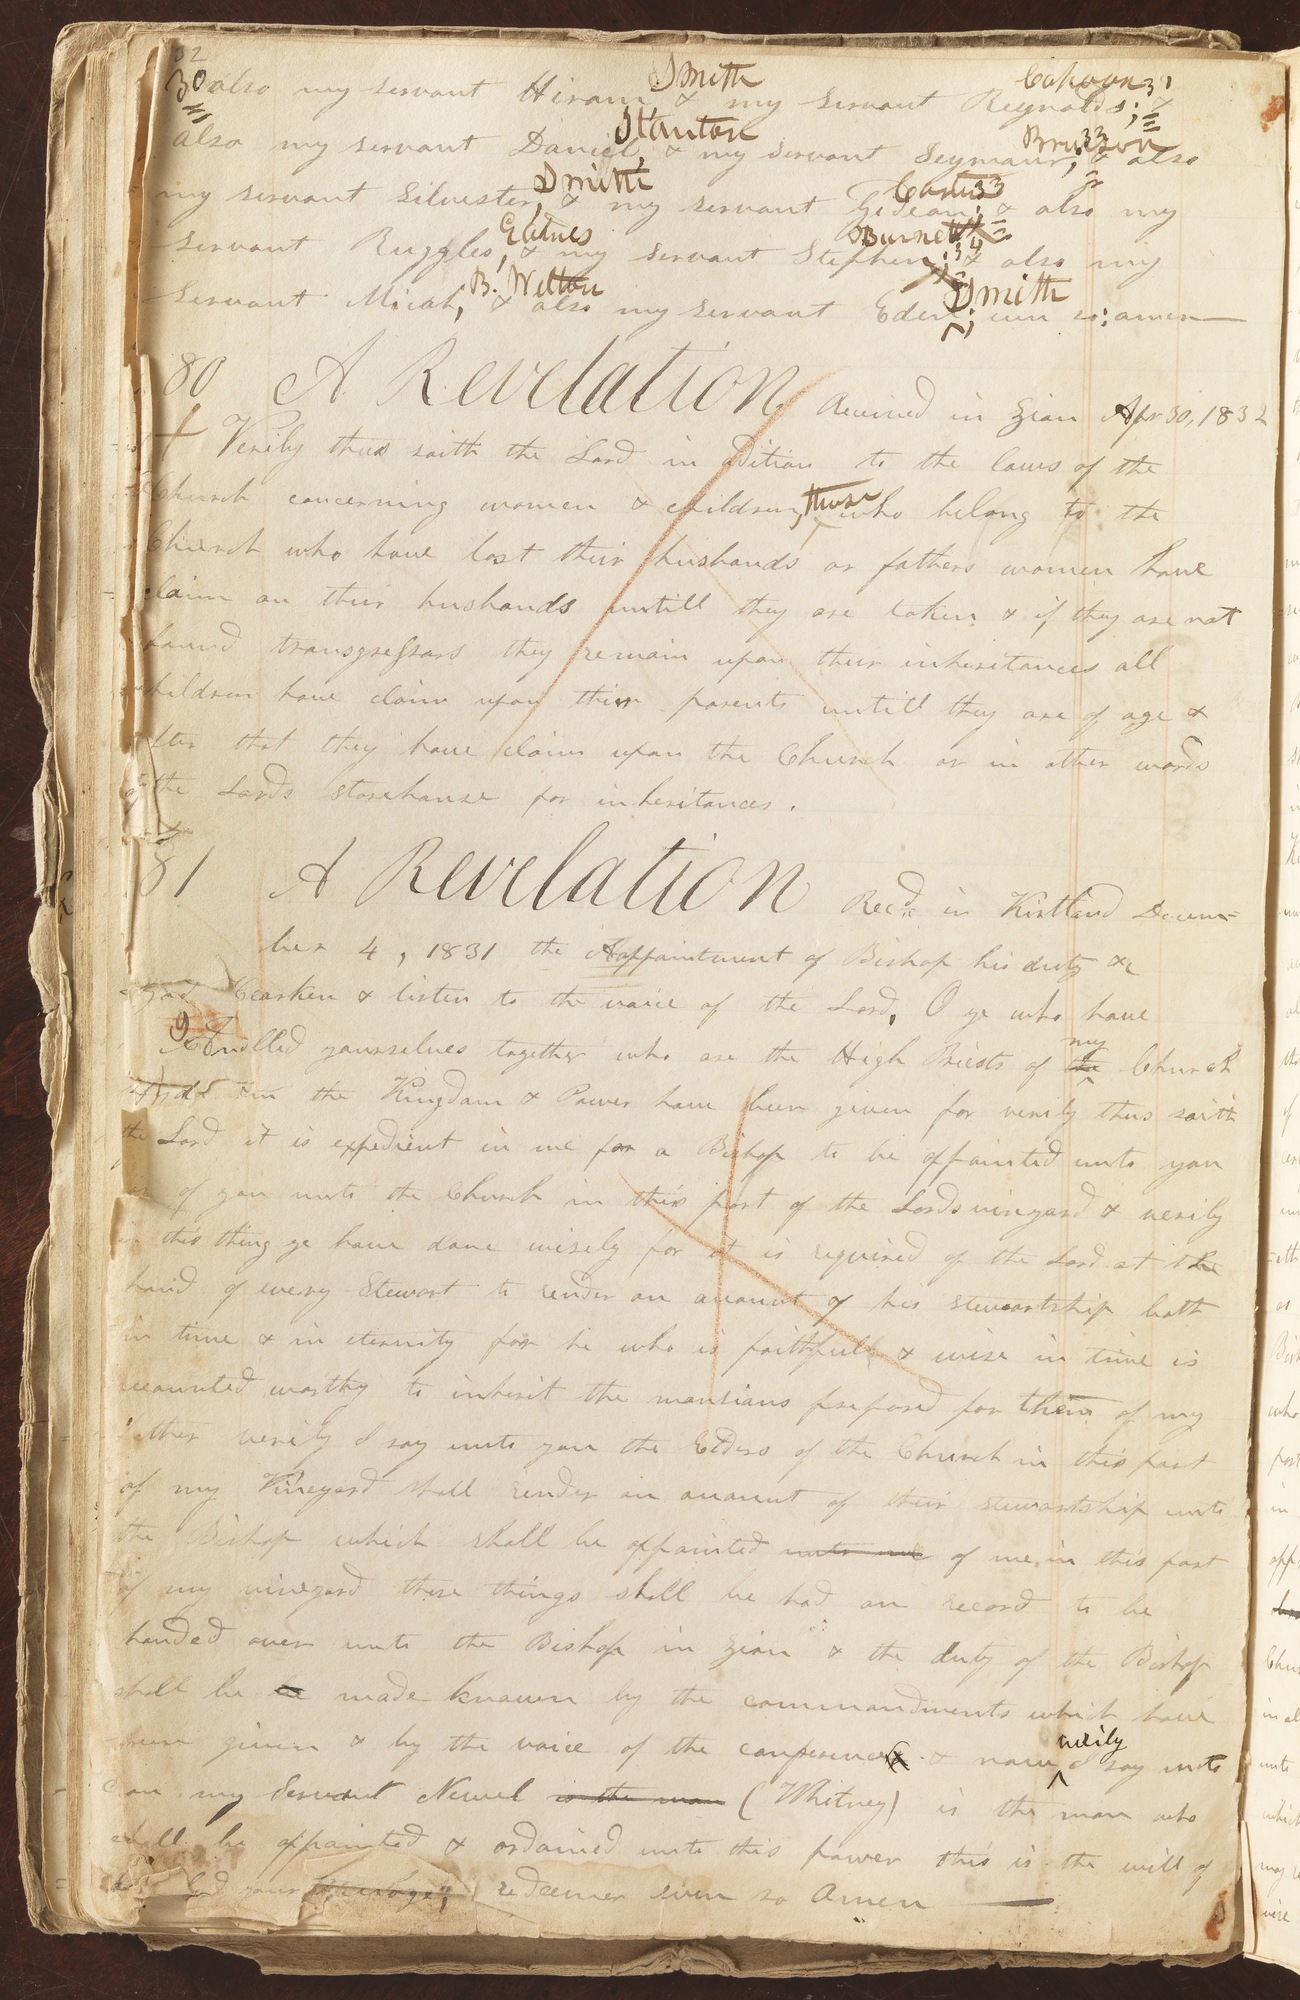 32
30 also my servant Hiram Smith & my servant Reynolds Cahoon; 31 &
also my servant Daniel Stanton, & my servant Seymour Brunson; 33 & also
my servant Silvester Smith, & my servant Gideon Carter; 33 & also my
servant Ruggles Eames, & my servant Stephen Burnett; 34 & also my
servant Micah B. Welton, & also my servant Eden Smith; even so: amen
80 A Revelation Received in Zion Apr 30, 1832
Verily thus saith the Lord in adition to the laws of the
Church concerning women & children, those who belong to the
Church who have lost their husbands or fathers women have
claim on their husbands untill they are taken & if they are not
found transgressors they remain upon their inheritances all
children have claim upon their parents untill they are of age &
after that they have claim upon the Church or in other words
the Lords storehouse for inheritances.
81 A Revelation Recd. in Kirtland Decem=
ber 4, 1831 the Appointment of Bishop his duty &c
hearken & listen to the voice of the Lord, O ye who have
yourselves together who are the High Priests of the my Church
the Kingdom & Power have been given for verily thus saith
the Lord it is expedient in me for a Bishop to be appointed unto you
of you unto the Church in this part of the Lords vinyard & verily
in this thing ye have done wisely for it is required of the Lord at the
hand of every Stewart to render an account of his stewartship both
in time & in eternity for he who is faithfull & wise in time is
accounted worthy to inherit the mansions prepared for them of my
Father verily I say unto you the Elders of the Church in this part
of my Vineyard shall render an account of their stewartship unto
the Bishop which shall be appointed unto me of me in this part
of my vineyard these things shall be had on record to be
handed over unto the Bishop in Zion & the duty of the Bishop
shall be made known by the commandments which have
been given & by the voice of the conference & now verily I say unto
you my Servant Newel is the man (Whitney) is the man who
shall be appointed & ordained unto this power this is the will of
the Lord your redeemer even so Amen